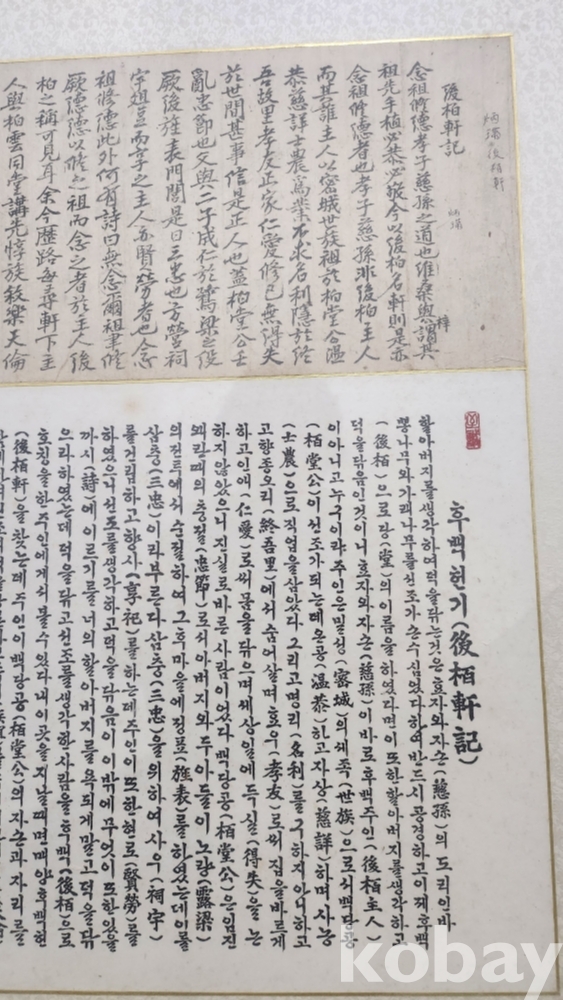 後栢軒
後栢軒記
念祖脩德孝子慈孫之道也維桑與謂其
梓
祖先手植必恭必敬今以後栢名軒則是亦
念祖脩德者也孝子慈孫非後栢主人
而其誰主人以密城世族祖於栢堂公溫
恭慈詳士農爲業不求名利隱於終
吾故里孝友正家仁愛修己無得失
於世間甚事信是正人也盖栢堂公壬
亂忠節也父與二子成仁於鷺梁之役
厥後旌表門閭是曰三忠也方營祠
宇俎豆而享之主人亦賢勞者也念
祖修德此外何有詩曰無念爾祖聿修
厥德德以修之祖而念之者於主人後
栢之稱可見耳余今歷路每尋軒下主
人與栢雲同堂講先惇族敍樂天倫
후백헌기(後栢軒記)
할아버지를생각하여덕을닦는것은효자와자손(慈孫)의도리인바
뽕나무와가래나무를선조가손수심었다하여반드시공경하고이제후백
(後栢)으로당(堂)의이름을하였다면이또한할아버지를생각하고
덕을닦음인것이니효자와자손(慈孫)이바로후백주인(後栢主人)
이아니고누구이랴주인은밀성(密城)의세족(世族)으로서백당공
(栢堂公)이선조가되는데온공(溫恭)하고자상(慈詳)하며사농
(士農)으로직업을삼았다그리고명리(名利)를구하지아니하고
고향종오리(終吾里)에서숨어살며효우(孝友)로써집을바르게
하고인애(仁愛)로써몸을닦으며세상일에득실(得失)을논
하지않았으니진실로바른사람이었다백당공(栢堂公)은임진
왜란때의충절(忠節)로서아버지와두아들이노량(露梁)
의전투에서순절하여그후마을에정표(旌表)를하였는데이를
삼충(三忠)이라부른다삼충(三忠)을위하여사우(祠宇)
를건립하고향사(享祀)를하는데주인이또한현로(賢勞)를
하였으니선조를생각하고덕을닦음이이밖에무엇이또한있을
까시(詩)에이르기를너의할아버지를욕되게말고덕을닦
으라하였는데덕을닦고선조를생각한사람을후백(後栢)으로
호칭을한주인에게서볼수있다내이곳을지날때면매양후백헌
(後栢軒)을찾는데주인이백당공(栢堂公)의자손과자리를
kobay